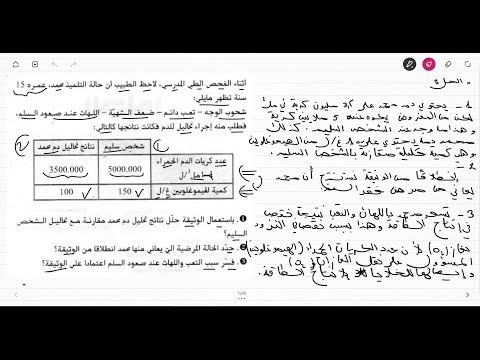 أثناء الفحص الطبي المدرسي، لاحظ الطبيب أن حالة التلميذ محمد، عمره 15
سنة تظهر مايلي:
شحوب الوجه – تعب دائم – ضعف الشهيّة – اللهات عند صعود السلم،
فطلب منه إجراء تحاليل للدم فكانت نتائجها كالتالي:
شخص سليم
نتائج تحاليل دم محمد
عدد كريات الدم الحمراء
5000.000
3500.000
كمية الهيموغلوبين غ/ل
150
100
1. باستعمال الوثيقة حلّل نتائج تحاليل دم محمد مقارنة مع تحاليل الشخص
السليم؟
2. حدّد الحالة المرضية التي يعاني منها محمد انطلاقا من الوثيقة؟
3. فسّر سبب التعب واللهات عند صعود السلم اعتمادا على الوثيقة؟
الحل:
1 - يحتوي دم محمد على 3,5 مليون كرية في
لكن من المفروض 5 ملايين كرية
وهذا ما وجد عند الشخص السليم. كذلك
محمد دمه يحتوي على غ/ل من الهيموغلوبين
وهي كمية قليلة مقارنة بالشخص السليم.
2 -
انطلاقا من الوثيقة نستنتج أن محمد
يعاني من مرض فقر الدم
3 - يشعر محمد باللهات والتعب نتيجة نقص
في إنتاج الطاقة وهذا بسبب نقص التزود
بغاز (o₂) لأن عدد الكريات الحمراء (الهيموغلوبين)
المسؤول على نقل الغاز (o₂)
وإيصالها للخلايا لإنتاج الطاقة.